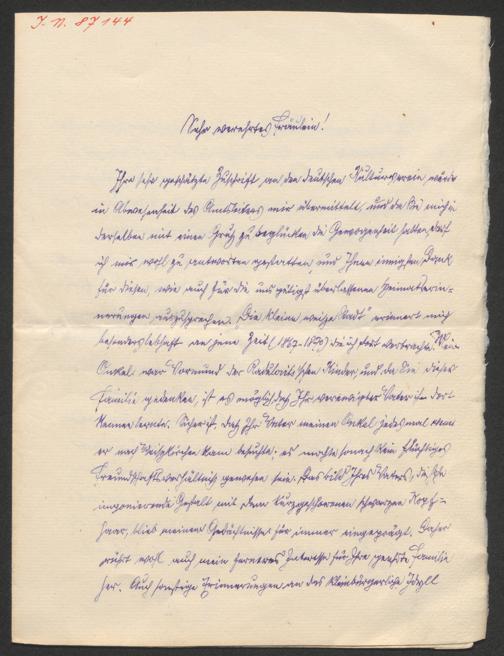 J. N. 87144
Sehr verehrtes Fräulein!
Ihre sehr geschätzte Zuschrift an den deutschen Kulturverein, wurde
in Abwesenheit des Amtsleiters mir übermittelt, und da Sie mich in
derselben mit einem Gruß zu beglücken die Gewogenheit hatten, darf
ich mir wohl zu antworten gestatten, und Ihnen innigsten Dank
für diesen, wie auch für die uns gütigst überlassenen Heimaterin-
nerungen auszusprechen. "Die kleine weiße Stadt" erinnert mich
besonders lebhaft an jene Zeit (1867-1870) die ich dort verbrachte. Mein
Onkel war Vormund der Kinder, und da Sie dieser
Familie gedenken, ist es möglich, daß Ihr verewigter Vater ihn dort
kennen lernte. Sicher ist, daß Ihr Vater meinen Onkel jedesmal wenn
er nach Weißkirchen kam besuchte; es mochte sonach kein flüchtiges
Freundschaftsverhältnis gewesen sein. Das Bild Ihres Vaters, die
imponierende Gestalt mit dem kurzgeschorenen schwarzen Kopf-
haar, blieb meinem Gedächtnisse für immer eingeprägt. Daher
rührt wohl auch mein ferneres Interesse für Ihre geehrte Familie
her. Auch sonstige Erinnerungen an das kleinbürgerliche Idyll